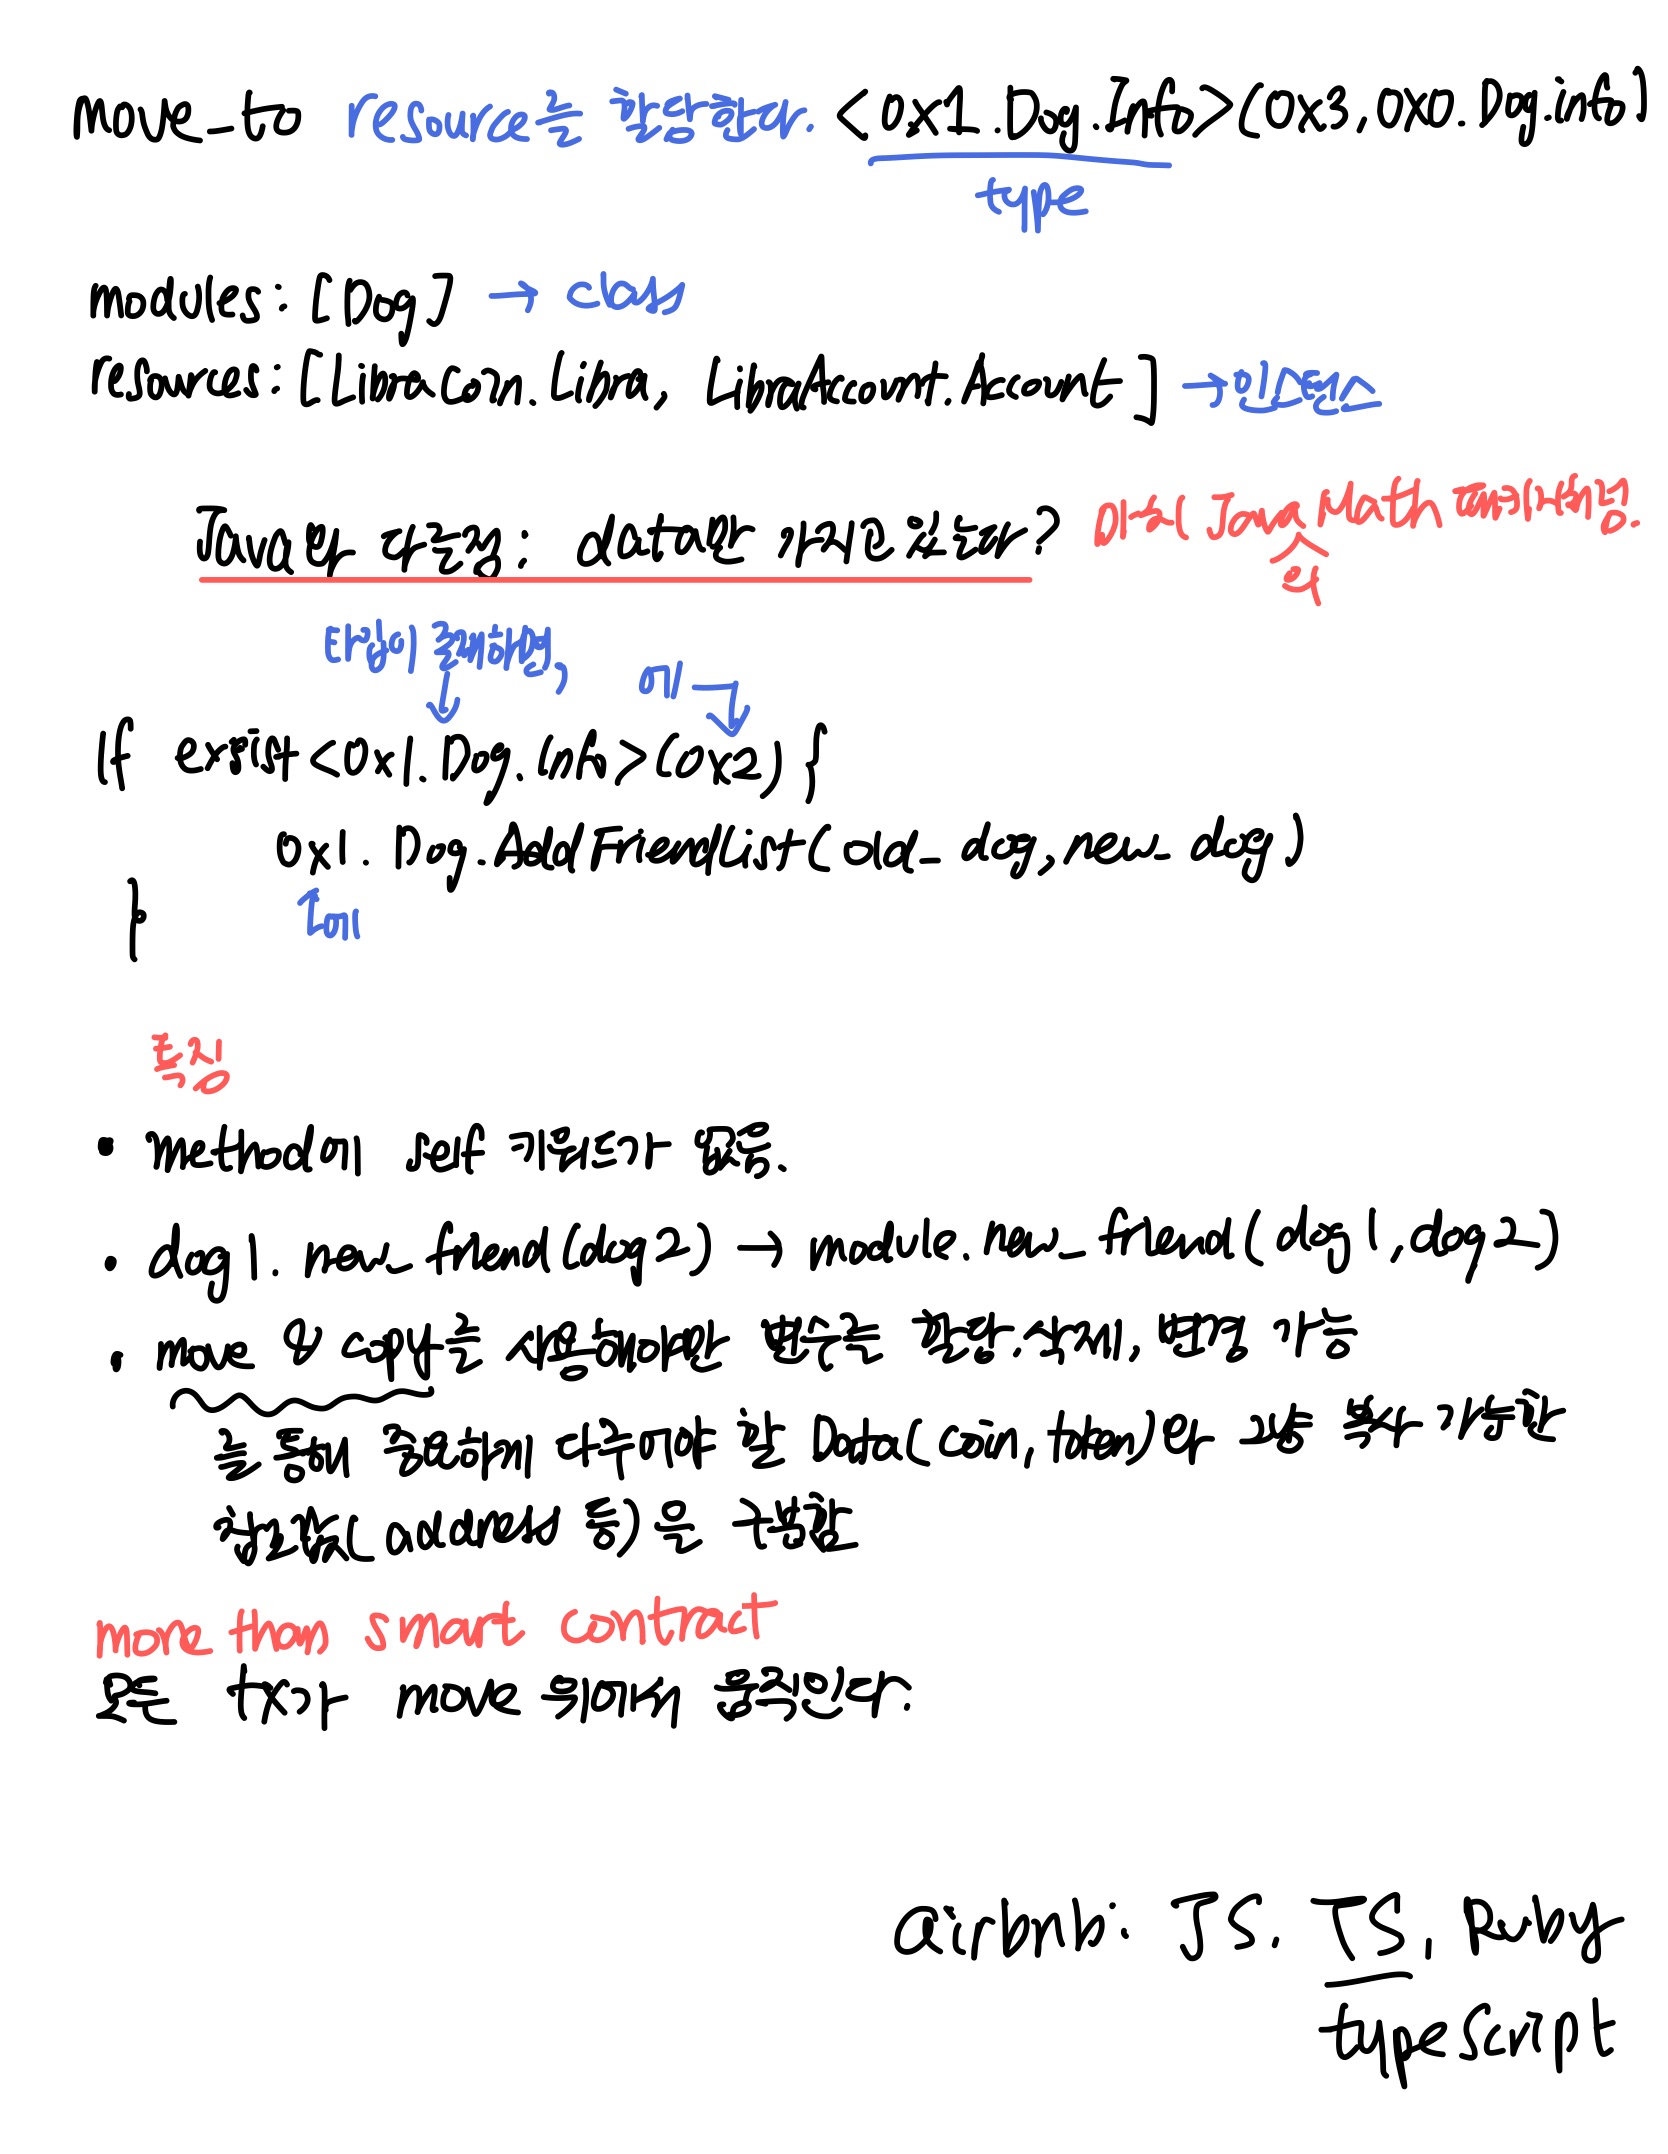 move_to resource를 할당한다. <0x1.Dog.Info>(0x3, 0x0.Dog.info]
type
modules: [Dog] → class
resources: [LibraCoin.Libra, LibraAccount.Account] → 인스턴스
Java와 다른점: data만 가지고 있는다? 마치 Java Math 패키지처럼.
의
타입이 존재하면,
에
If exsist<0x1.Dog.Info>(0x2) {
0x1.Dog.AddFriendList(old_dog, new_dog)
}
↑에
특징
• method에 self 키워드가 없음.
• dog1.new_friend(dog2) → module.new_friend(dog1, dog2)
• move & copy를 사용해야만 변수를 할당.삭제, 변경 가능
를 통해 중요하게 다루어야 할 Data(coin, token)와 그냥 복사 가능한
참조값(address 등)을 구분함
more than smart contract
모든 tx가 move 위에서 움직인다.
airbnb: JS. TS, Ruby
typeScript